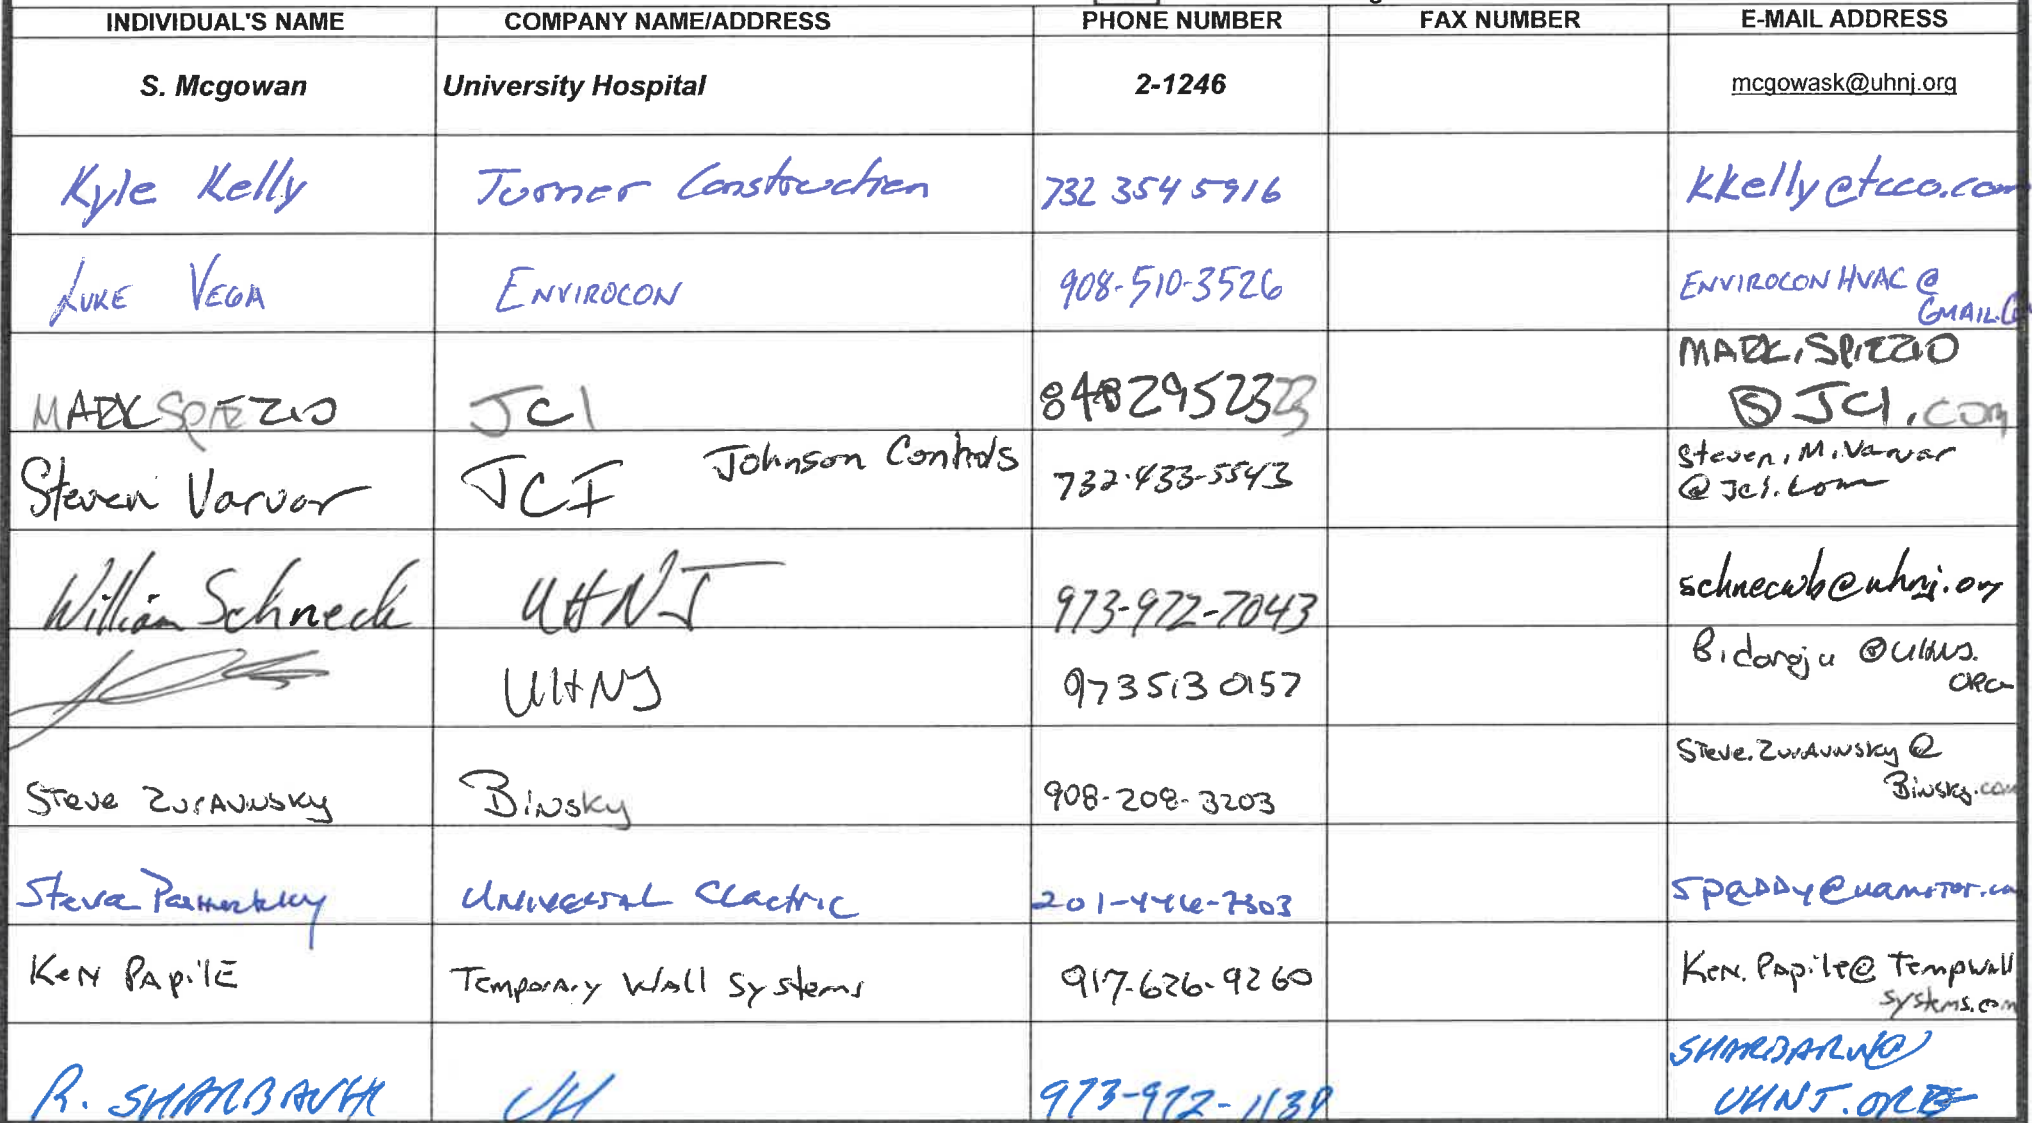 INDIVIDUAL'S NAME COMPANY NAME/ADDRESS PHONE NUMBER FAX NUMBER E-MAIL ADDRESS
S. Mcgowan University Hospital 2-1246 mcgowask@uhnj.org
Kyle Kelly Turner Construction 732 354 5916 kkelly@tcco.com
LUKE VEGA ENVIROCON 908-510-3526 ENVIROCON HVAC @
GMAIL.Co
MARK SPIEZIO JCI 8482952323 MARK.SPIEZIO
@JCI.com
Steven Varvar JCI Johnson Controls 732-433-5543 Steven.M.Varvar
@jci.com
William Schneck UHNJ 973-972-7043 schnecwb@uhnj.org
UHNJ 9735130157 Bidaroju @UHNJ.
ORG
Steve Zuravnsky Binsky 908-208-3203 Steve.Zuravnsky@
Binsky.com
Steve UNIVERSAL Electric 201-446-7303
KeN PApilE Temporary Wall Systems 917-626-9260 KeN.Papile@Tempwall
systems.com
R. SHARBAUGH UH 973-972-1139 SHARBARW@
UHNJ.ORG